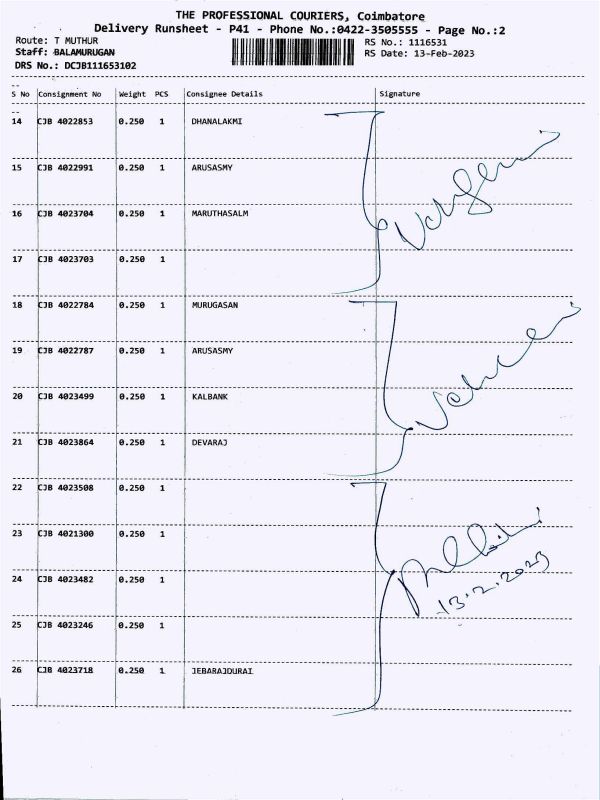 THE PROFESSIONAL COURIERS, Coimbatore
Delivery Runsheet - P41 - Phone No.:0422-3505555 - Page No.:2
Route: T MUTHUR RS No.: 1116531
Staff: BALAMURUGAN RS Date: 13-Feb-2023
DRS No.: DCJB111653102
S No Consignment No Weight PCS Consignee Details Signature
14 CJB 4022853 0.250 1 DHANALAKMI
15 CJB 4022991 0.250 1 ARUSASMY
16 CJB 4023704 0.250 1 MARUTHASALM
17 CJB 4023703 0.250 1
18 CJB 4022784 0.250 1 MURUGASAN
19 CJB 4022787 0.250 1 ARUSASMY
20 CJB 4023499 0.250 1 KALBANK
21 CJB 4023864 0.250 1 DEVARAJ
22 CJB 4023508 0.250 1
23 CJB 4021300 0.250 1
24 CJB 4023482 0.250 1
13.2.2023
25 CJB 4023246 0.250 1
26 CJB 4023718 0.250 1 JEBARAJDURAI